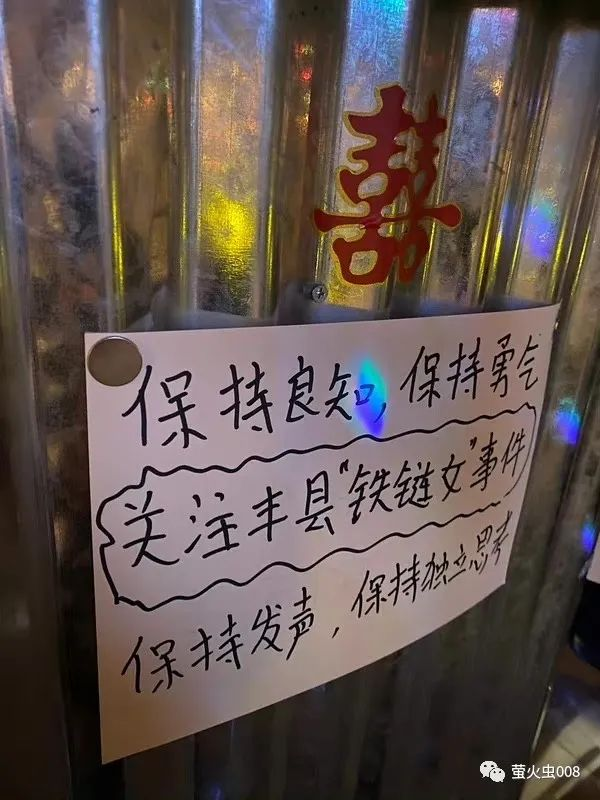 囍
保持良知,保持勇气
关注丰县“铁链女”事件
保持发声,保持独立思考
萤火虫008